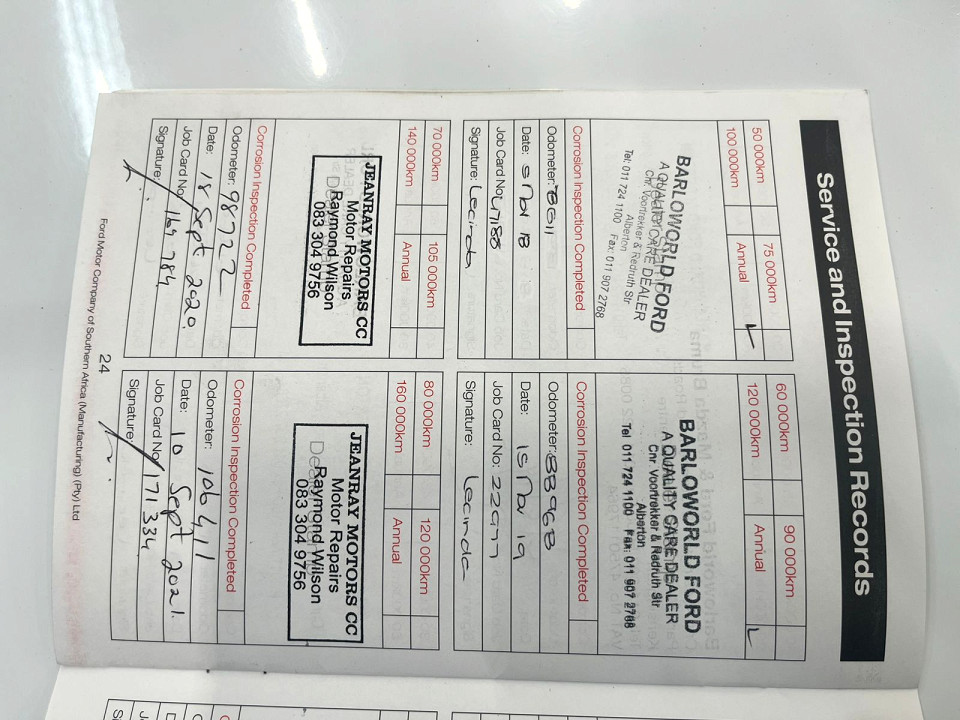 Service and Inspection Records
50 000km
75 000km
100 000km
Annual
BARLOWORLD FORD
A QUALITY CARE DEALER
Cnr. Voortrekker & Redruth Str
Alberton
Tel: 011 724 1100 Fax: 011 907 2768
Corrosion Inspection Completed
Odometer: 78011
Date:
Job Card No: 47188
Signature: Lecinda
60 000km
90 000km
120 000km
Annual
BARLOWORLD FORD
A QUALITY CARE DEALER
Cnr. Voortrekker & Redruth Str
Alberton
Tel 011 724 1100 Fax: 011 907 2768
Corrosion Inspection Completed
Odometer: 88968
Date: 15 Nov 19
Job Card No: 22977
Signature: Lecinda
70 000km
105 000km
140 000km
Annual
JEANRAY MOTORS CC
Motor Repairs
Raymond Wilson
083 304 9756
Corrosion Inspection Completed
Odometer: 98722
Date: 18 Sept 2020.
Job Card No: 164 784
Signature:
80 000km
120 000km
160 000km
Annual
JEANRAY MOTORS CC
Motor Repairs
Raymond Wilson
083 304 9756
Corrosion Inspection Completed
Odometer: 106 411
Date: 10 Sept 2021.
Job Card No: 171 334
Signature:
24
Ford Motor Company of Southern Africa (Manufacturing) (Pty) Ltd